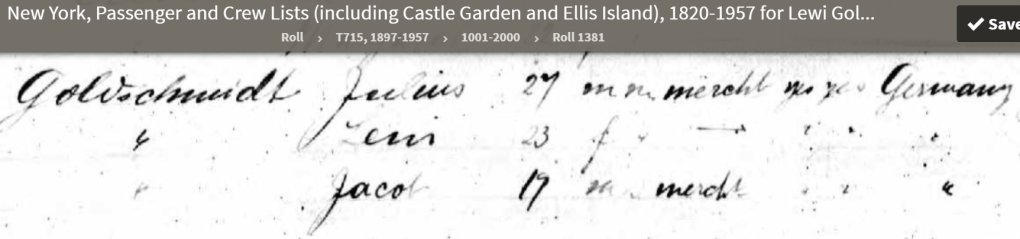 New York, Passenger and Crew Lists (including Castle Garden and Ellis Island), 1820-1957 for Lewi Gol...
Save
Roll › T715, 1897-1957 › 1001-2000 › Roll 1381
Goldschmidt Julius 27 m m mercht yes yes Germany
" 23 f " — " " "
" Jacob 19 m " mercht " " "